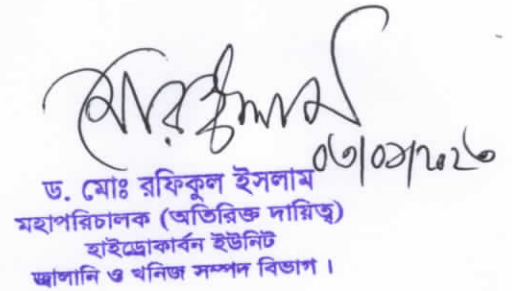 ০৩/০৯/২০২৩
ড. মোঃ রফিকুল ইসলাম
মহাপরিচালক (অতিরিক্ত দায়িত্ব)
হাইড্রোকার্বন ইউনিট
জ্বালানি ও খনিজ সম্পদ বিভাগ।